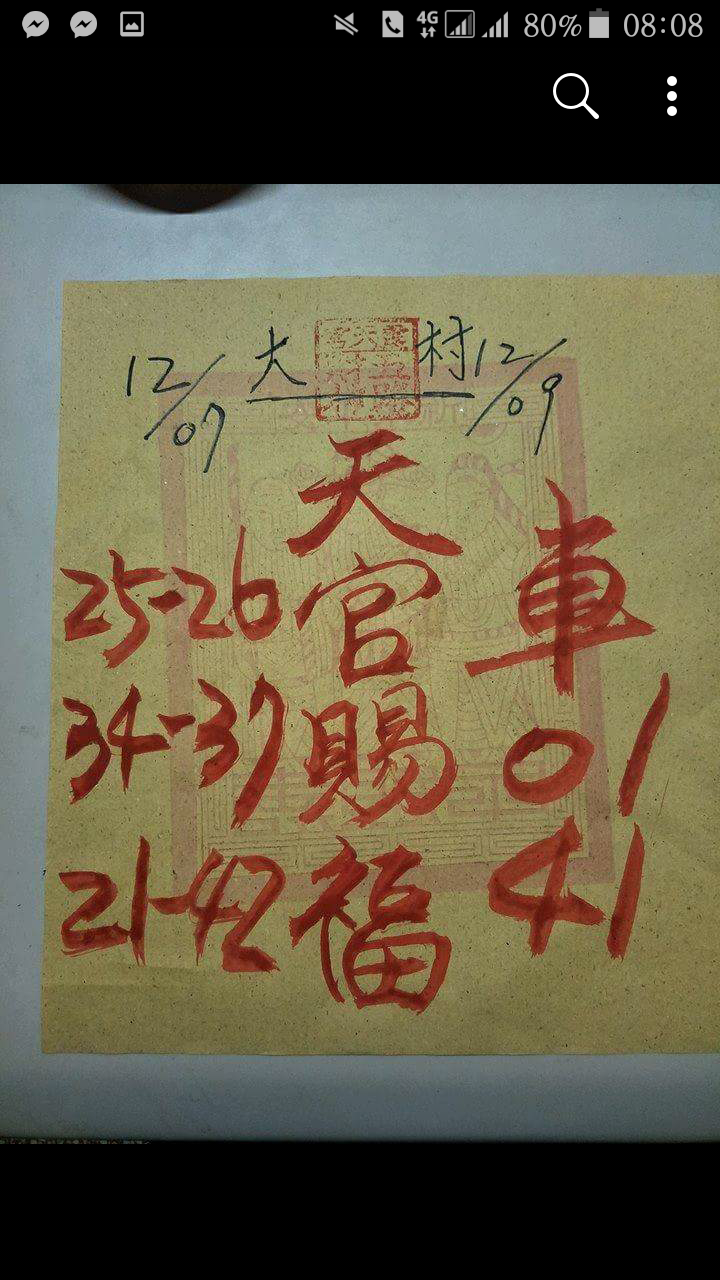 4G 80% 08:08
12/07 大村 12/09
天官賜福
車
25-26
01
34-37
41
21-42